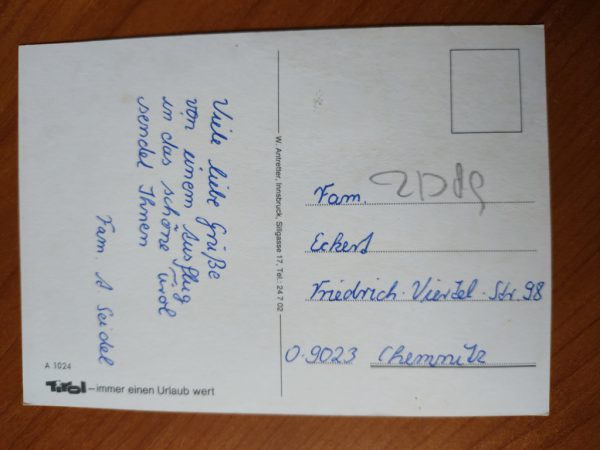 Viele liebe Grüße
von einem Ausflug
in das schöne Tirol
sendet Ihnen
Fam. A Seidel
A 1024
Tirol – immer einen Urlaub wert
W. Antretter, Innsbruck, Sillgasse 17, Tel.: 24 7 02
Fam.
Eckert
Friedrich-Viertel-Str. 98
O-9023 Chemnitz